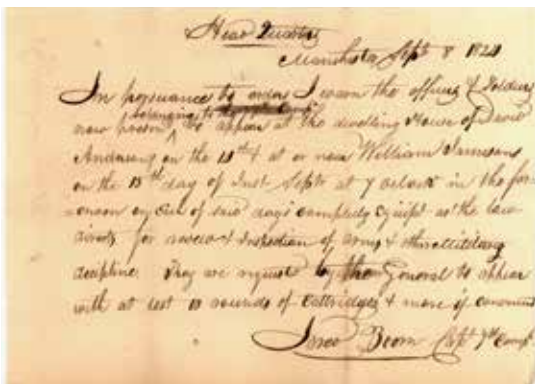 Head Quarters
Manchester Sept 8 1820
In persuance to orders I warn the officers & Soldiers
belonging to
now to appear at the dwelling House of David
on the 13th & at or near William Jamesons
on the 15th day of Inst Sept at 7 oclock in the for
-enoon on each of said days compleatly equipt as the law
directs for review & Inspection of arms & other Military
decipline They are requested by the General to appear
with at lest rounds of Cattridges & more if convenient
Capt 7th Comp